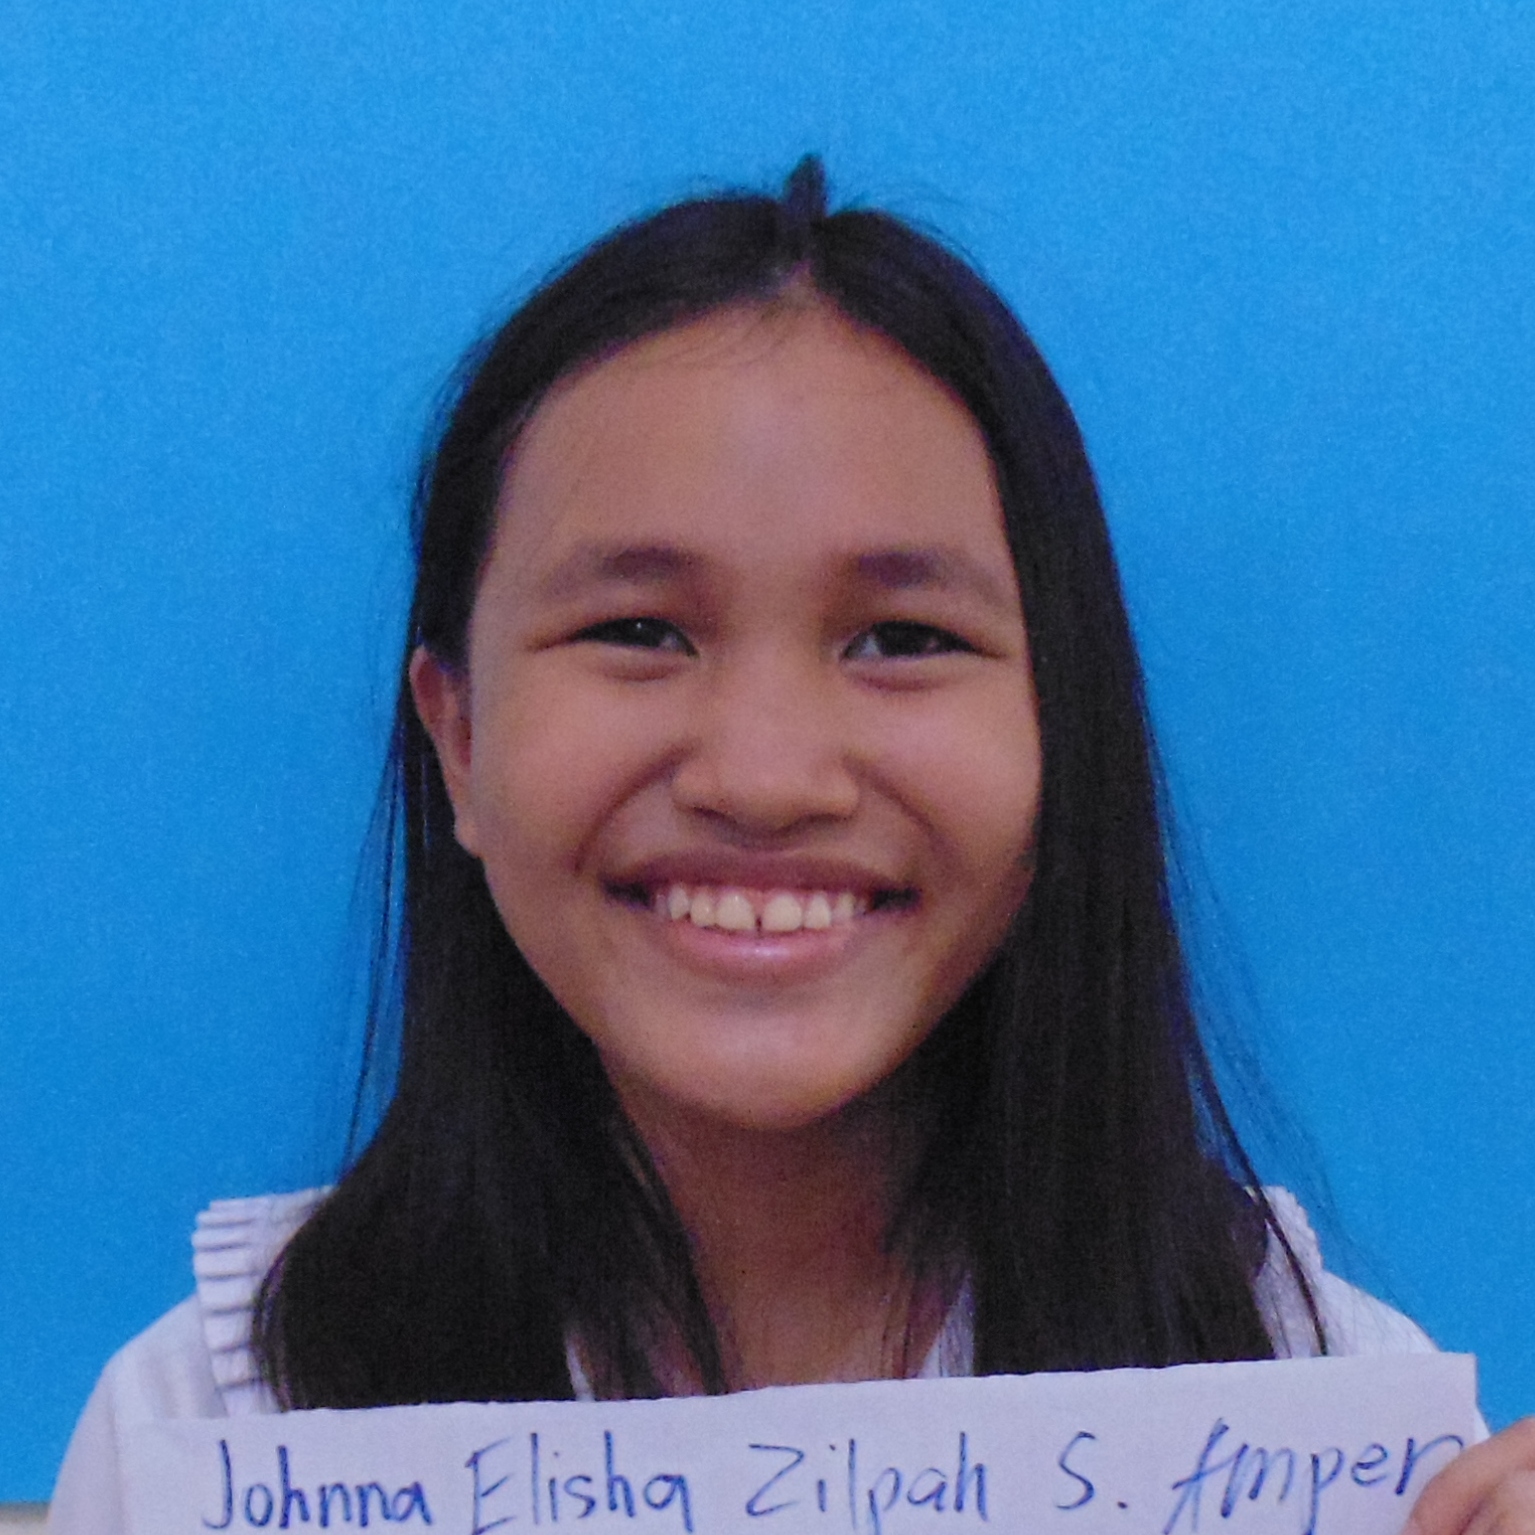 Johnna Elisha Zilpah S. Amper